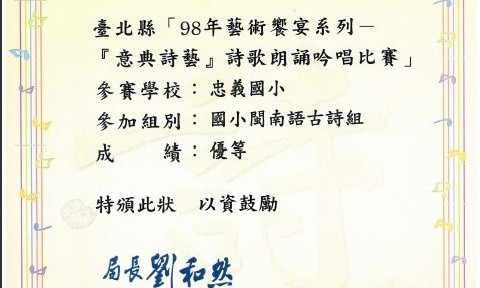 臺北縣「98年藝術饗宴系列－
『意典詩藝』詩歌朗誦吟唱比賽」
參賽學校：忠義國小
參加組別：國小閩南語古詩組
成　　績：優等
特頒此狀　以資鼓勵
局長劉和然